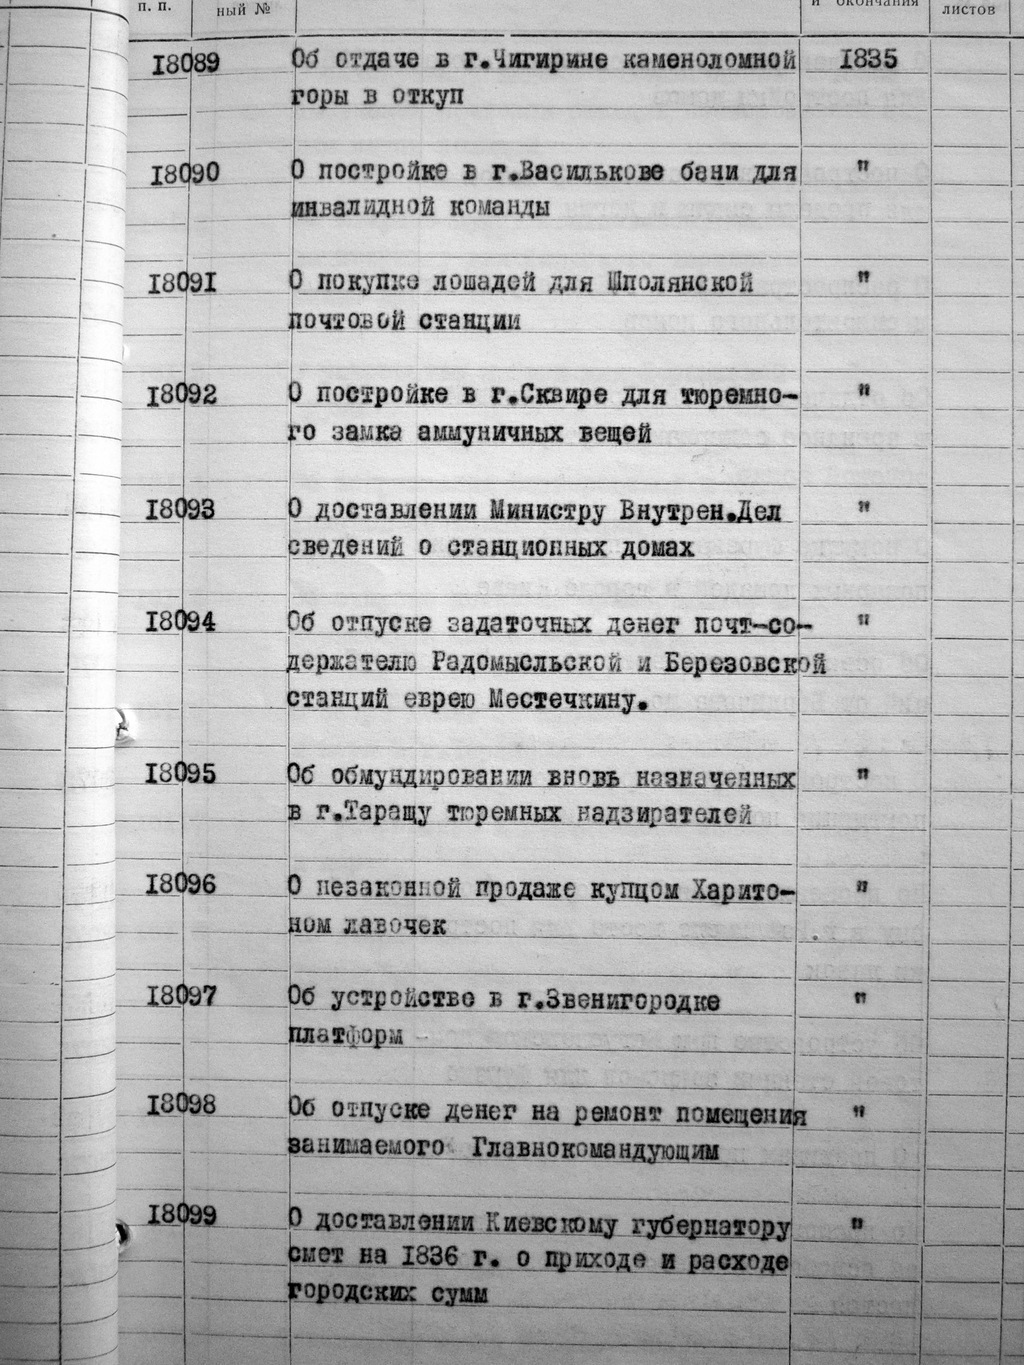 п. п. ный № и окончания листов
18089 Об отдаче в г.Чигирине каменоломной 1835
горы в откуп
18090 О постройке в г.Василькове бани для "
инвалидной команды
18091 О покупке лошадей для Шполянской "
почтовой станции
18092 О постройке в г.Сквире для тюремно- "
го замка аммуничных вещей
18093 О доставлении Министру Внутрен.Дел "
сведений о станционных домах
18094 Об отпуске задаточных денег почт-со- "
держателю Радомысльской и Березовской
станций еврею Местечкину.
18095 Об обмундировании вновь назначенных "
в г.Таращу тюремных надзирателей
18096 О незаконной продаже купцом Харито- "
ном лавочек
18097 Об устройстве в г.Звенигородке "
платформ
18098 Об отпуске денег на ремонт помещения "
занимаемого Главнокомандующим
18099 О доставлении Киевскому губернатору "
смет на 1836 г. о приходе и расходе
городских сумм